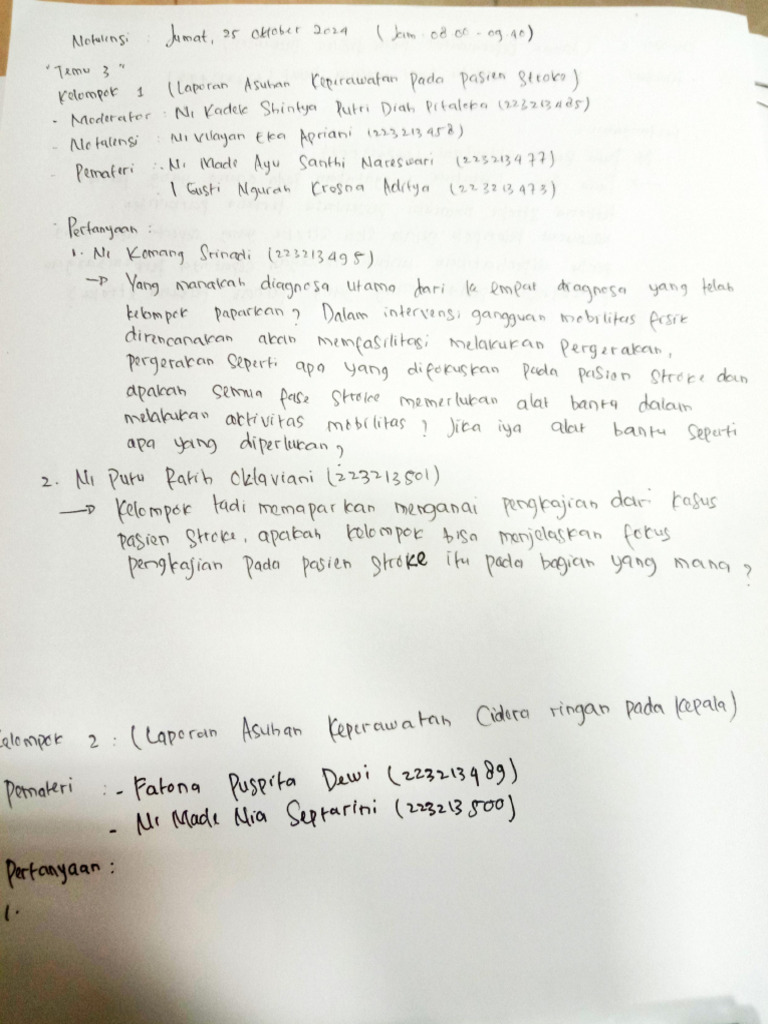 Notulensi : Jumat, 25 Oktober 2024 (Jam. 08.00 - 09.40)
"Temu 3"
Kelompok 1 (Laporan Asuhan Keperawatan pada pasien Stroke)
- Moderator : Ni Kadek Shintya Putri Diah Pitaloka (223213485)
- Notulensi : Ni Wayan Eka Apriani (223213458)
- Pemateri : . Ni Made Ayu Santhi Nareswari (223213477)
. I Gusti Ngurah Krosna Aditya (223213473)
Pertanyaan :
1. Ni Komang Srinadi (223213495)
→ Yang manakah diagnosa utama dari ke empat diagnosa yang telah
kelompok paparkan? Dalam intervensi gangguan mobilitas fisik
direncanakan akan memfasilitasi melakukan pergerakan,
pergerakan seperti apa yang difokuskan pada pasien stroke dan
apakah semua fase stroke memerlukan alat bantu dalam
melakukan aktivitas mobilitas? Jika iya alat bantu seperti
apa yang diperlukan?
2. Ni Putu Ratih Oktaviani (223213501)
→ Kelompok tadi memaparkan mengenai pengkajian dari kasus
pasien stroke, apakah kelompok bisa menjelaskan fokus
pengkajian pada pasien stroke itu pada bagian yang mana?
Kelompok 2 : (Laporan Asuhan Keperawatan Cidera ringan pada kepala)
Pemateri : - Fatona Puspita Dewi (223213489)
- Ni Made Nia Septarini (223213500)
Pertanyaan :
1.